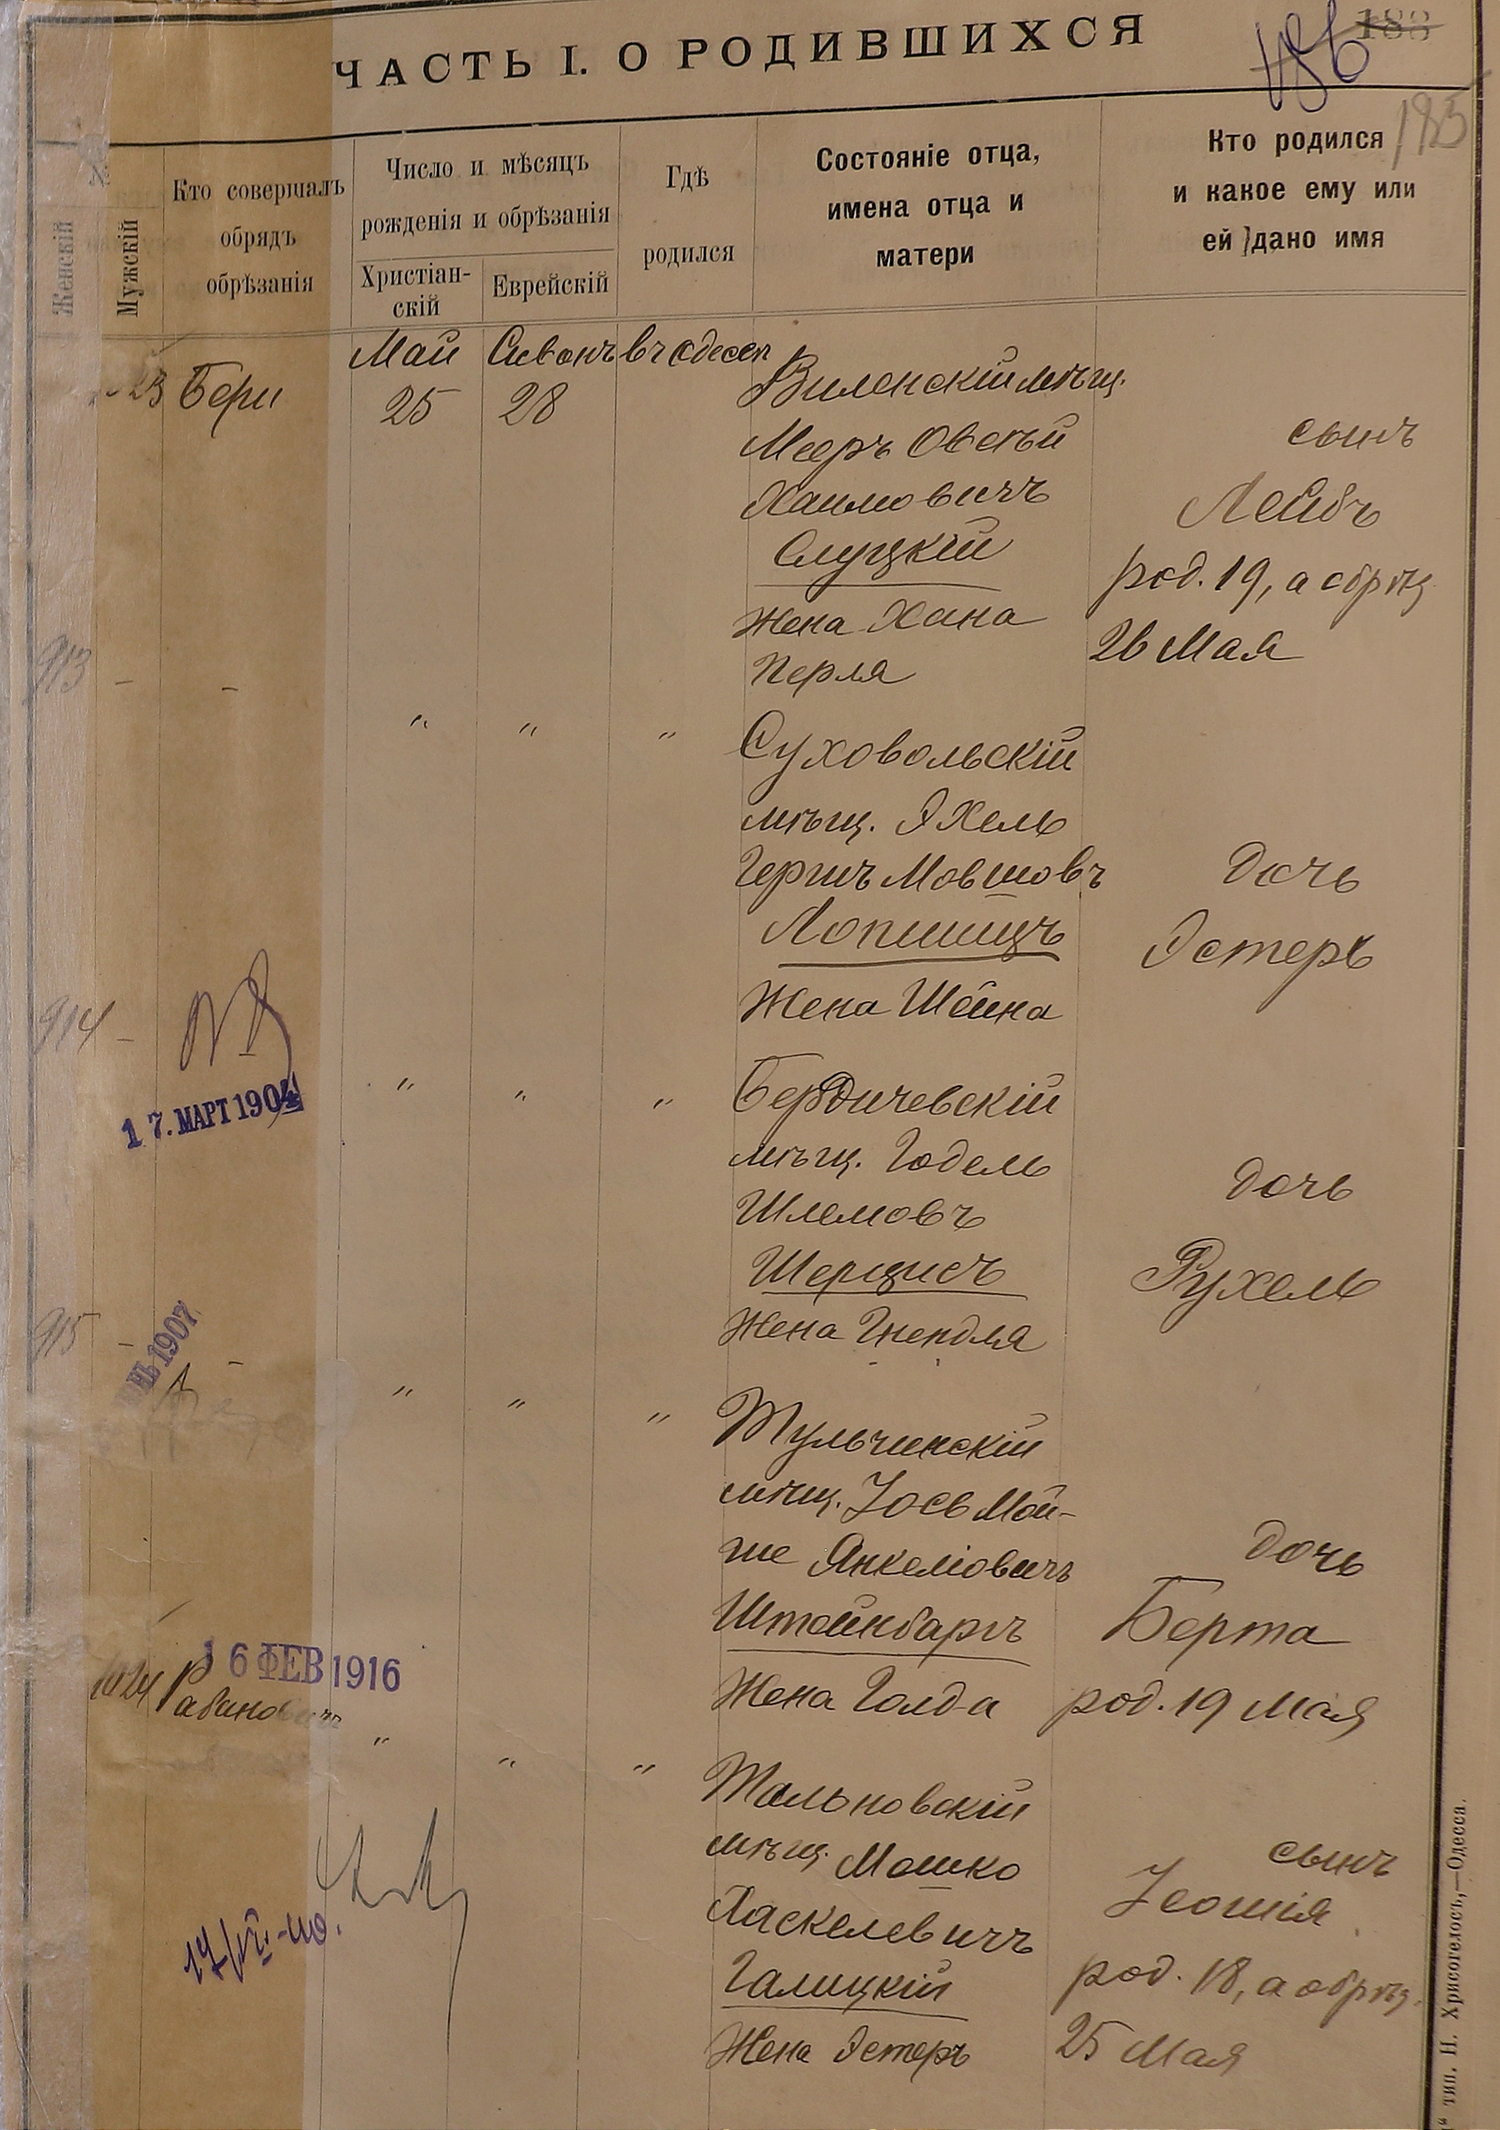 ЧАСТЬ I. О РОДИВШИХСЯ
186
183
185
№
Женскій
Мужскій
Кто совершалъ
обрядъ
обрѣзанія
Число и мѣсяцъ
рожденія и обрѣзанія
Христіан-
скій
Еврейскій
Гдѣ
родился
Состояніе отца,
имена отца и
матери
Кто родился
и какое ему или
ей дано имя
Бери
Май
25
Сиванъ
28
въ Одессѣ
Виленскій мѣщ.
Мееръ Овсѣй
Хаимовичъ
Слуцкій
Жена Хана
Перля
сынъ
Лейбъ
род. 19, а обрѣз.
26 Мая
913 - -
" " "
Суховольскій
мѣщ. Эхель
Гершъ Мовшовъ
Лопшицъ
Жена Шейна
дочь
Эстеръ
914 -
17. МАРТ 1904
" " "
Бердичевскій
мѣщ. Годель
Шлемовъ
Шерцисъ
Жена Гнендля
дочь
Рухель
915 - -
1907
" " "
Тульчинскій
мѣщ. Іось Мой-
ше Янкеліовичъ
Штейнбаргъ
Жена Голда
дочь
Берта
род. 19 Мая
16 ФЕВ 1916
1024 Рабиновичъ
" " "
Тальновскій
мѣщ. Мошко
Хаскелевичъ
Галицкій
Жена Эстеръ
сынъ
Іеошія
род. 18, а обрѣз.
25 Мая
" тип. Н. Хрисогелосъ,—Одесса.